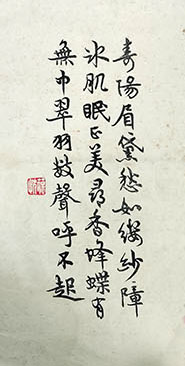 壽陽眉黛愁如縷紗障
冰肌眠正美尋香蜂蝶有
無中翠羽數聲呼不起